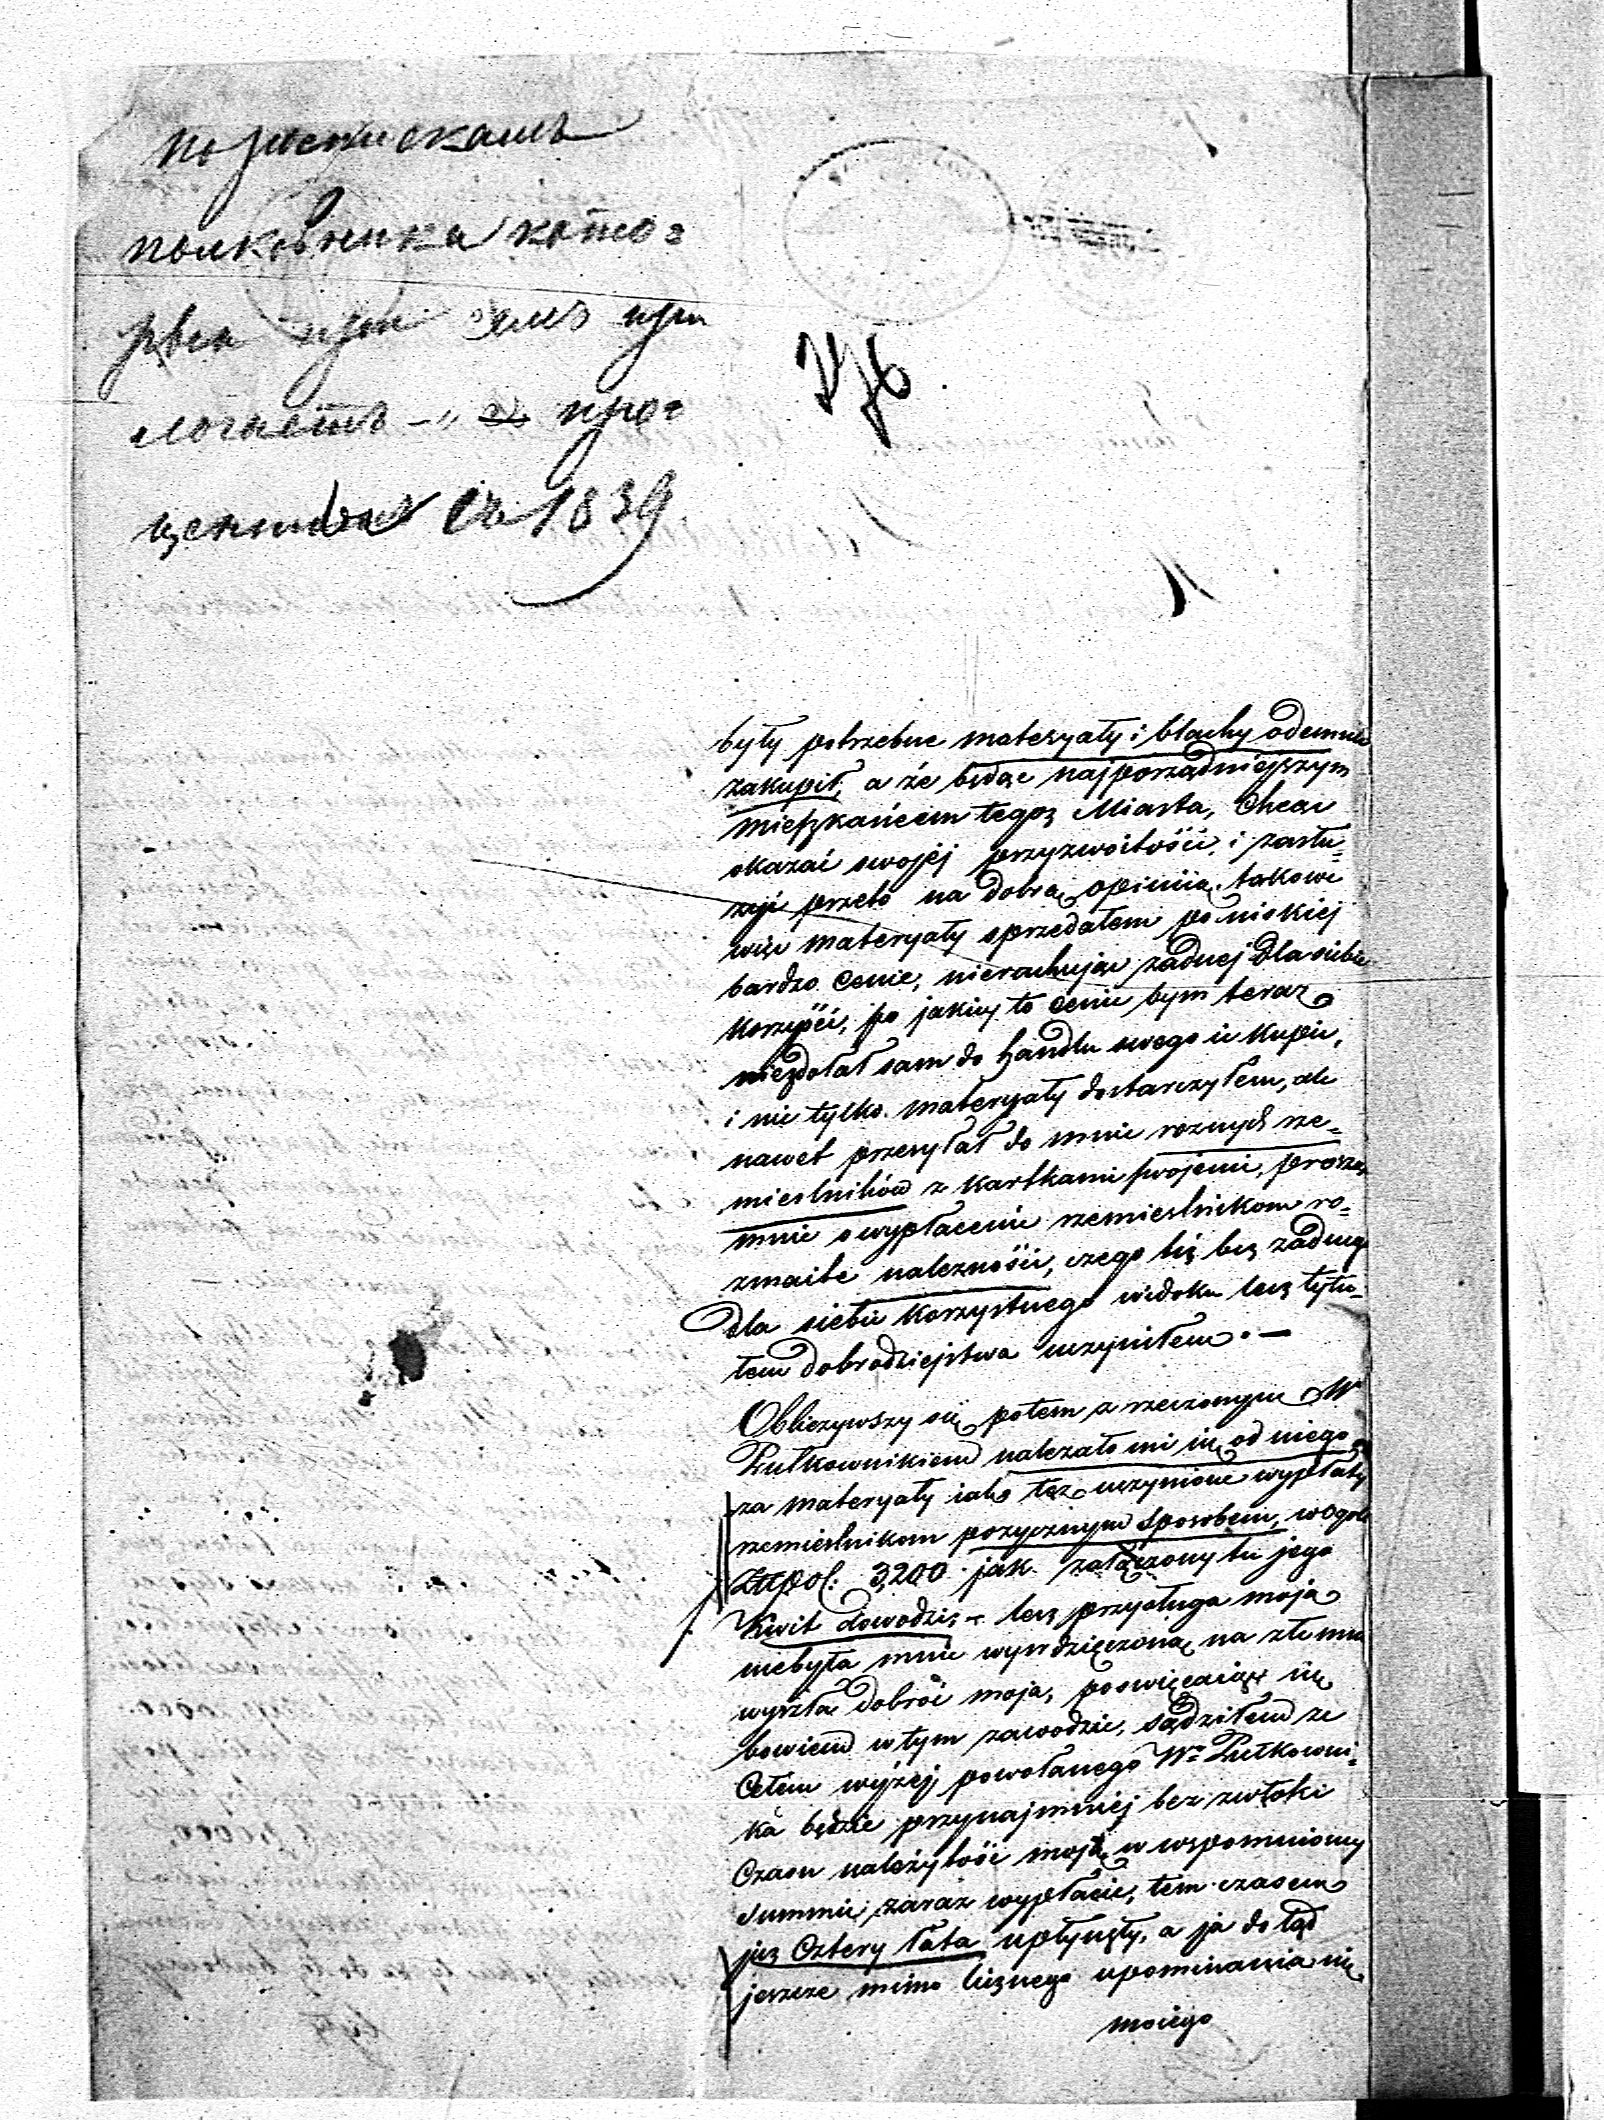 по роспискамъ
полковника кото=
рыя при семъ при
логаетъ — " про=
центва съ 1839
były potrzebne materyały i blachy odemnie
zakupił, a że będąc najporządniejszym
mieszkańcem tegoż Miasta, Chcąc
okazać swojéj przyzwoitości, i zasłu=
żyć przeto na dobrą opiniię, takowe
więc materyały sprzedałem po niskiej
bardzo Cenie, nierachując żadnej dla siebie
Korzyści, po jakiey to Cenie bym teraz
niezdołał sam do handlu swego ie kupić,
i nie tylko materyały dostarczyłem, ale
nawet przesyłał do mnie roznych rze=
mieslników z kartkami swojemi, prosząc
mnie o wypłacenie rzemieslnikom ro=
zmaite nalezności, czego też bez żadnego
dla siebie Korzystnego widoku lecz tytu=
łem dobrodziejstwa uczyniłem. —
Obliczywszy się potem z rzeczonym W
Pułkownikiem należało mi się od niego
za materyały iako też uczynione wypłaty
rzemieslnikom pozycznym sposobem, w ogole
Złtpol: 3200 jak załączony tu jego
Kwit dowodzi, — lecz przysługa moja
niebyła mnie wywdzięczoną, na złe mnie
wyszła dobroć moja, poswięcając się
bowiem w tym zawodzie, sądziłem ze
Celem wyżéj powołanego W Pułkowni=
ka będzie przynajmniéj bez zwłoki
Czasu należytość moją w wspomnioney
Summie zaraz wypłacić, tem czasem
już Cztery lata upłynęły, a ja do tąd
jeszcze mimo licznego upominania się
moiego